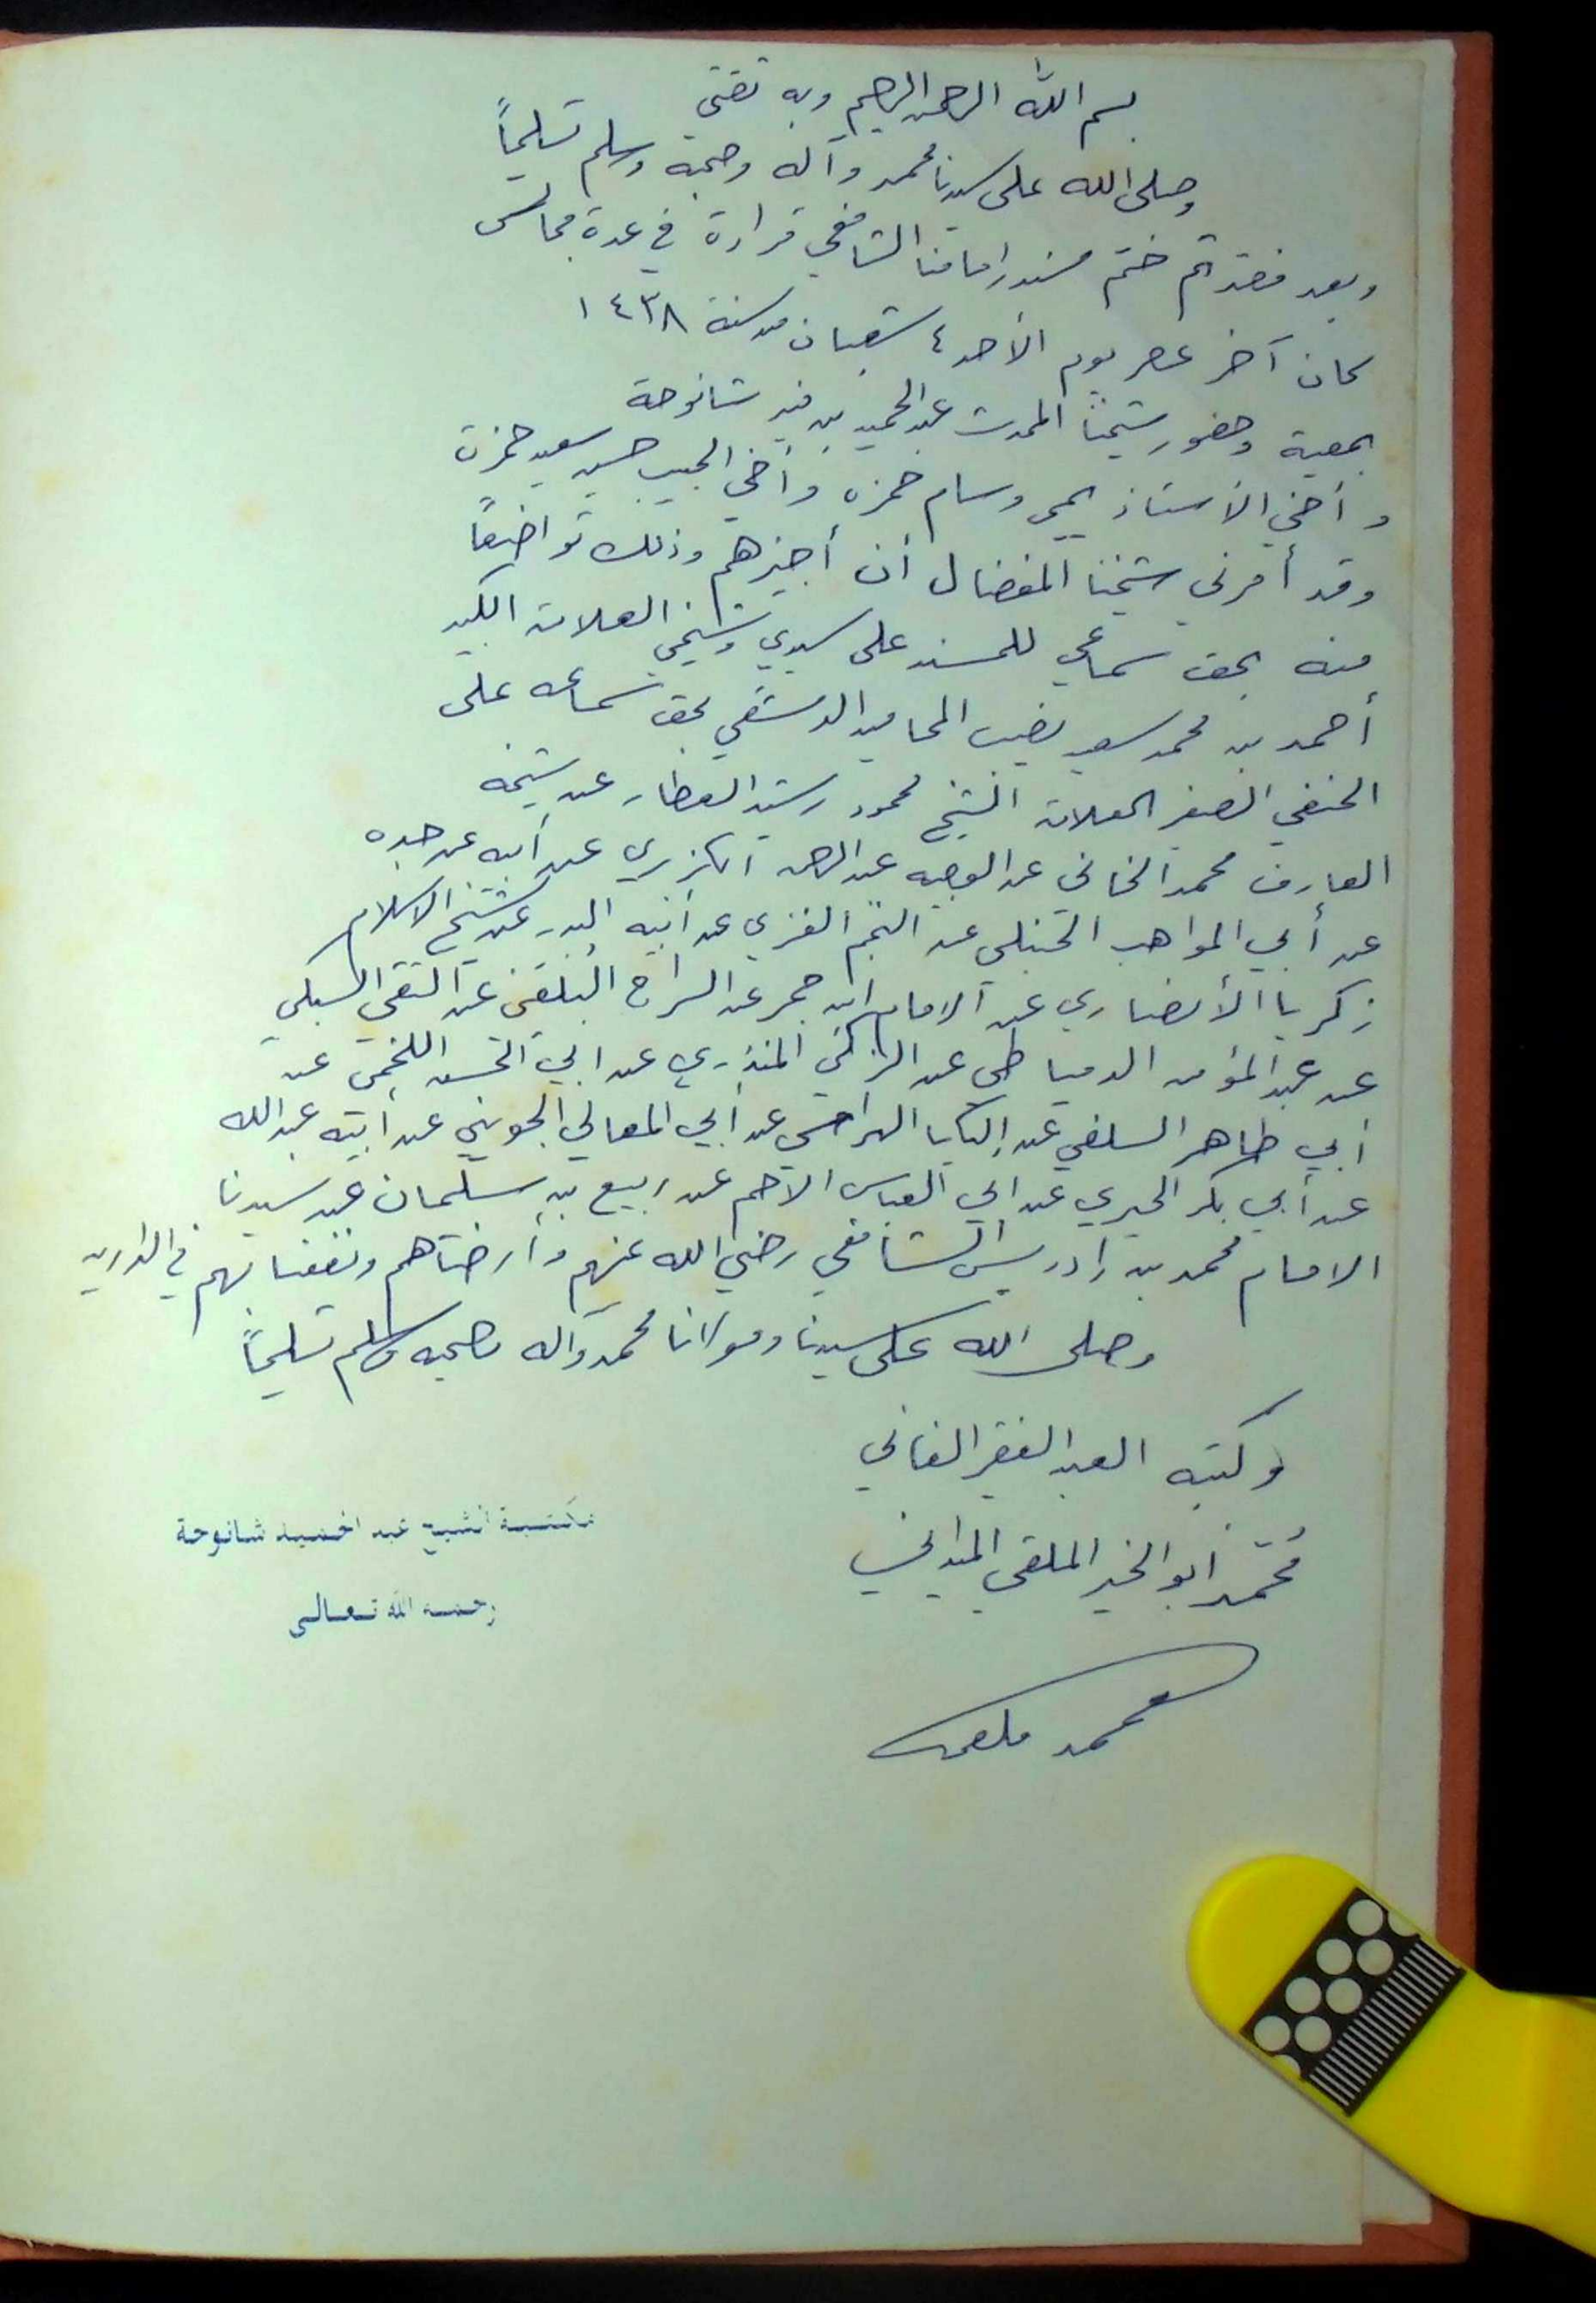 بسم الله الرحمن الرحيم وبه ثقتي
وصلى الله على سيدنا محمد وآله وصحبه وسلم تسليماً
وبعد فقد تم ختم مسند إمامنا الشافعي قراءة في عدة مجالس
كان آخر عصر يوم الأحد ٤ شعبان من سنة ١٤٣٨
بمعية وحضور شيخنا المحدث عبد الحميد بن منير شانوحة
وأخي الأستاذ يحيى وسام حمزه وأخي الحبيب حسين سعيد حمزة
وقد أمرني شيخنا المفضال أن أجيزهم وذلك تواضعاً
منه بحق سماعي للمسند على سيدي وشيخي العلامة الكبير
أحمد بن محمد سعيد نصيب المحاميد الدمشقي بحق سماعه على
الحنفي الصغير العلامة الشيخ محمود رشيد العطار عن شيخه
العارف محمد الخاني عن الوجيه عبد الرحمن الكزبري عن أبيه عن جده
عن أبي المواهب الحنبلي عن النجم الغزي عن أبيه البدر عن شيخ الاسلام
زكريا الأنصاري عن الامام ابن حجر عن السراج البلقيني عن التقي السبكي
عن عبد المؤمن الدمياطي عن الزكي المنذري عن ابي الحسن اللخمي عن
أبي طاهر السلفي عن إلكيا الهراسي عن أبي المعالي الجويني عن أبيه عبد الله
عن أبي بكر الحيري عن ابي العباس الأصم عن ربيع بن سليمان عن سيدنا
الامام محمد بن إدريس الشافعي رضي الله عنهم وأرضاهم ونفعنا بهم في الدارين
وصلى الله على سيدنا ومولانا محمد وآله وصحبه وسلم تسليماً
وكتبه العبد الفقير الفاني
محمد أبو الخير الملقي الميداني
مكتبة الشيخ عبد الحميد شانوحة
رحمه الله تعالى
محمد ملقي